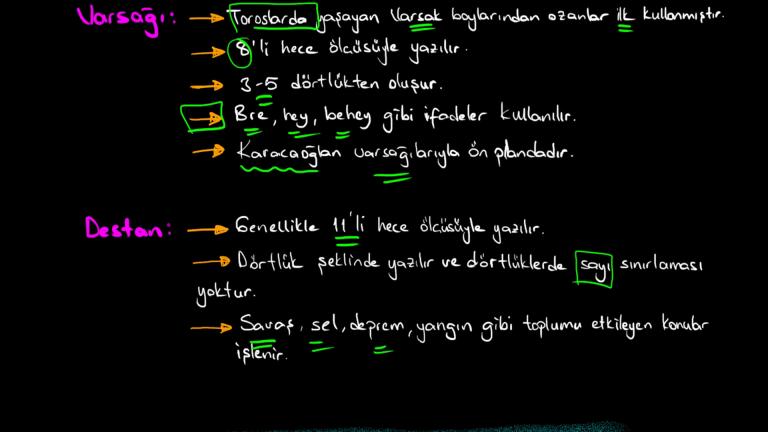 Varsağı: → Toroslarda yaşayan Varsak boylarından ozanlar ilk kullanmıştır.
→ 8'li hece ölçüsüyle yazılır.
→ 3-5 dörtlükten oluşur.
→ Bre, hey, behey gibi ifadeler kullanılır.
→ Karacaoğlan varsağılarıyla ön plandadır.
Destan: → Genellikle 11'li hece ölçüsüyle yazılır.
→ Dörtlük şeklinde yazılır ve dörtlüklerde sayı sınırlaması
yoktur.
→ Savaş, sel, deprem, yangın gibi toplumu etkileyen konular
işlenir.